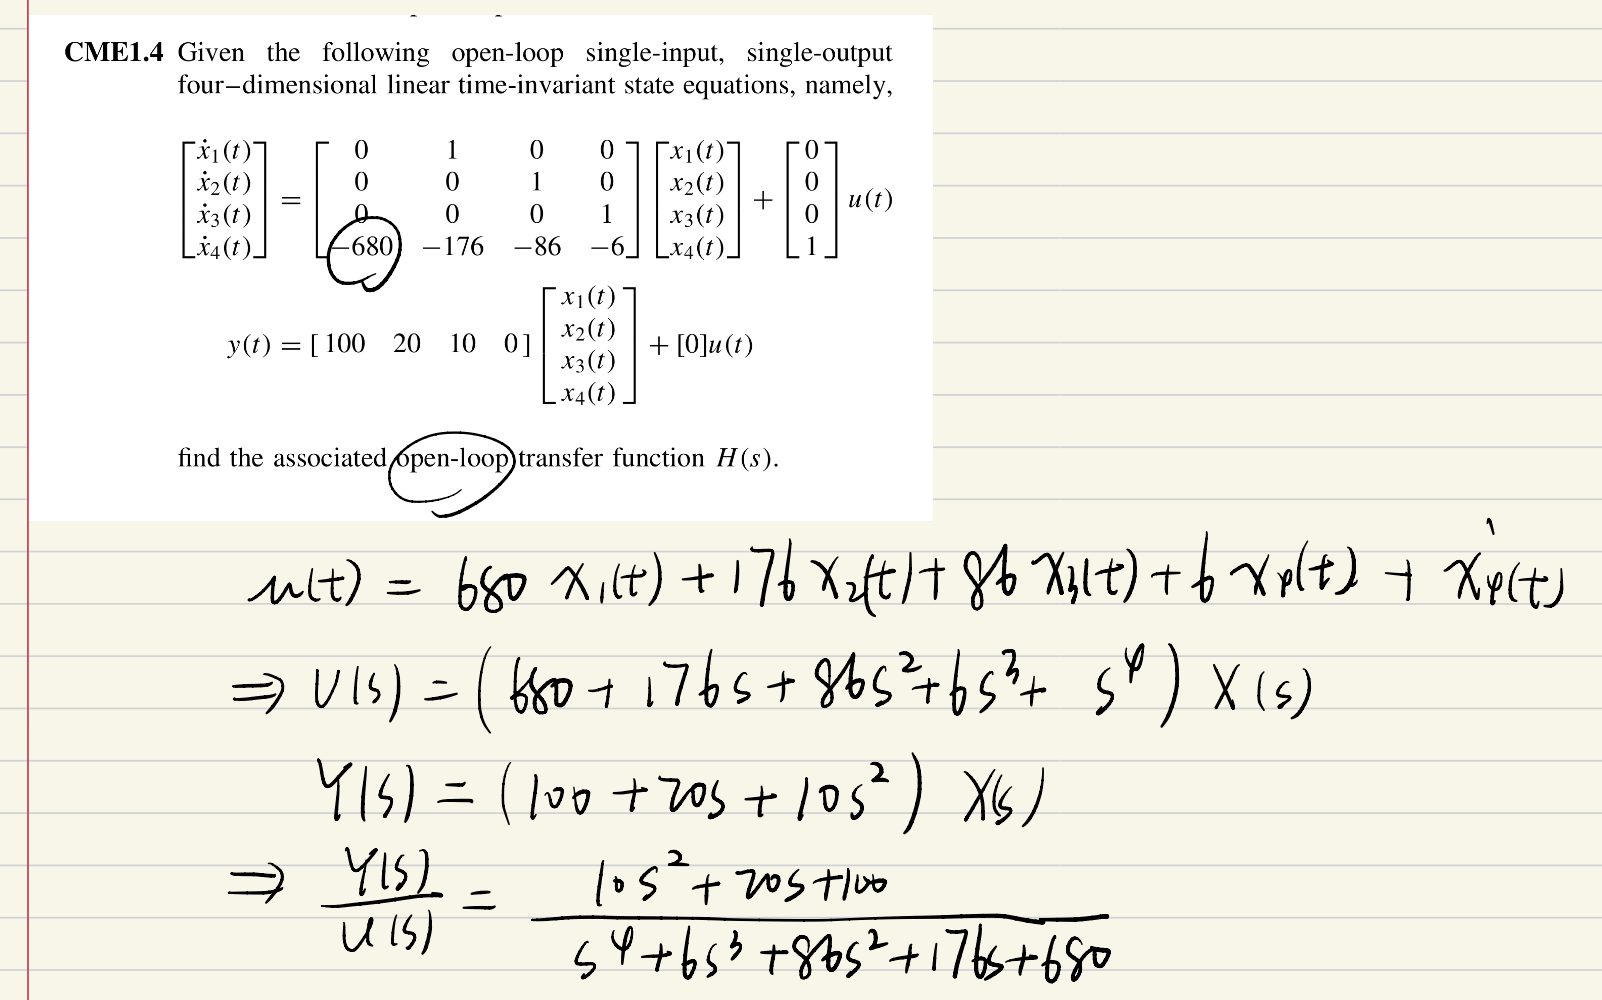 CME1.4 Given the following open-loop single-input, single-output
four–dimensional linear time-invariant state equations, namely,
[ẋ1(t)] = [0 1 0 0] [x1(t)] + [0] u(t)
[ẋ2(t)] [0 0 1 0] [x2(t)] [0]
[ẋ3(t)] [0 0 0 1] [x3(t)] [0]
[ẋ4(t)] [−680 −176 −86 −6] [x4(t)] [1]
y(t) = [ 100 20 10 0] [x1(t) x2(t) x3(t) x4(t)] + [0]u(t)
find the associated open-loop transfer function H(s).
u(t) = 680 x1(t) + 176 x2(t) + 86 x3(t) + 6 x4(t) + ẋ4(t)
⇒ U(s) = (680 + 176s + 86s² + 6s³ + s⁴) X(s)
Y(s) = (100 + 20s + 10s²) X(s)
⇒ Y(s)/U(s) = (10s² + 20s + 100)/(s⁴ + 6s³ + 86s² + 176s + 680)